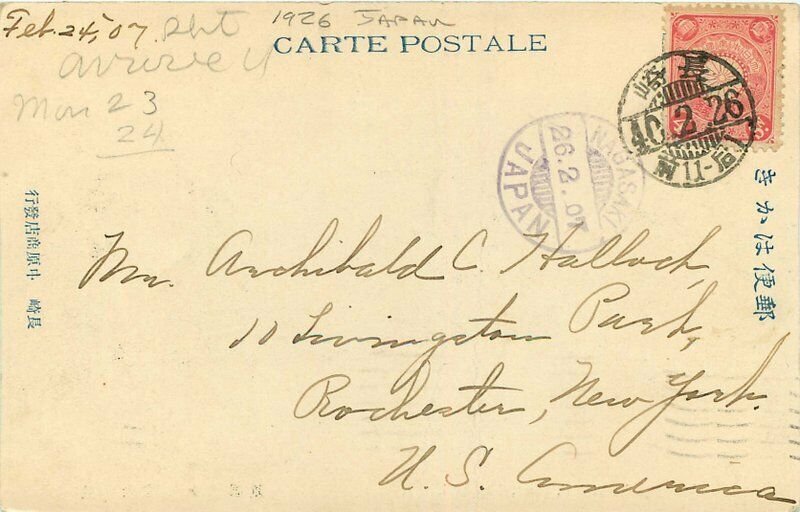 Feb. 24, 07.
1926 JAPAN
CARTE POSTALE
Mon 23
24
長崎
40.2.26
NAGASAKI
26.2.07
JAPAN
きかは便郵
Mr. Archibald C. Halloch,
10 Livingston Park,
Rochester, New York.
U. S. America
行發店商原中 崎長